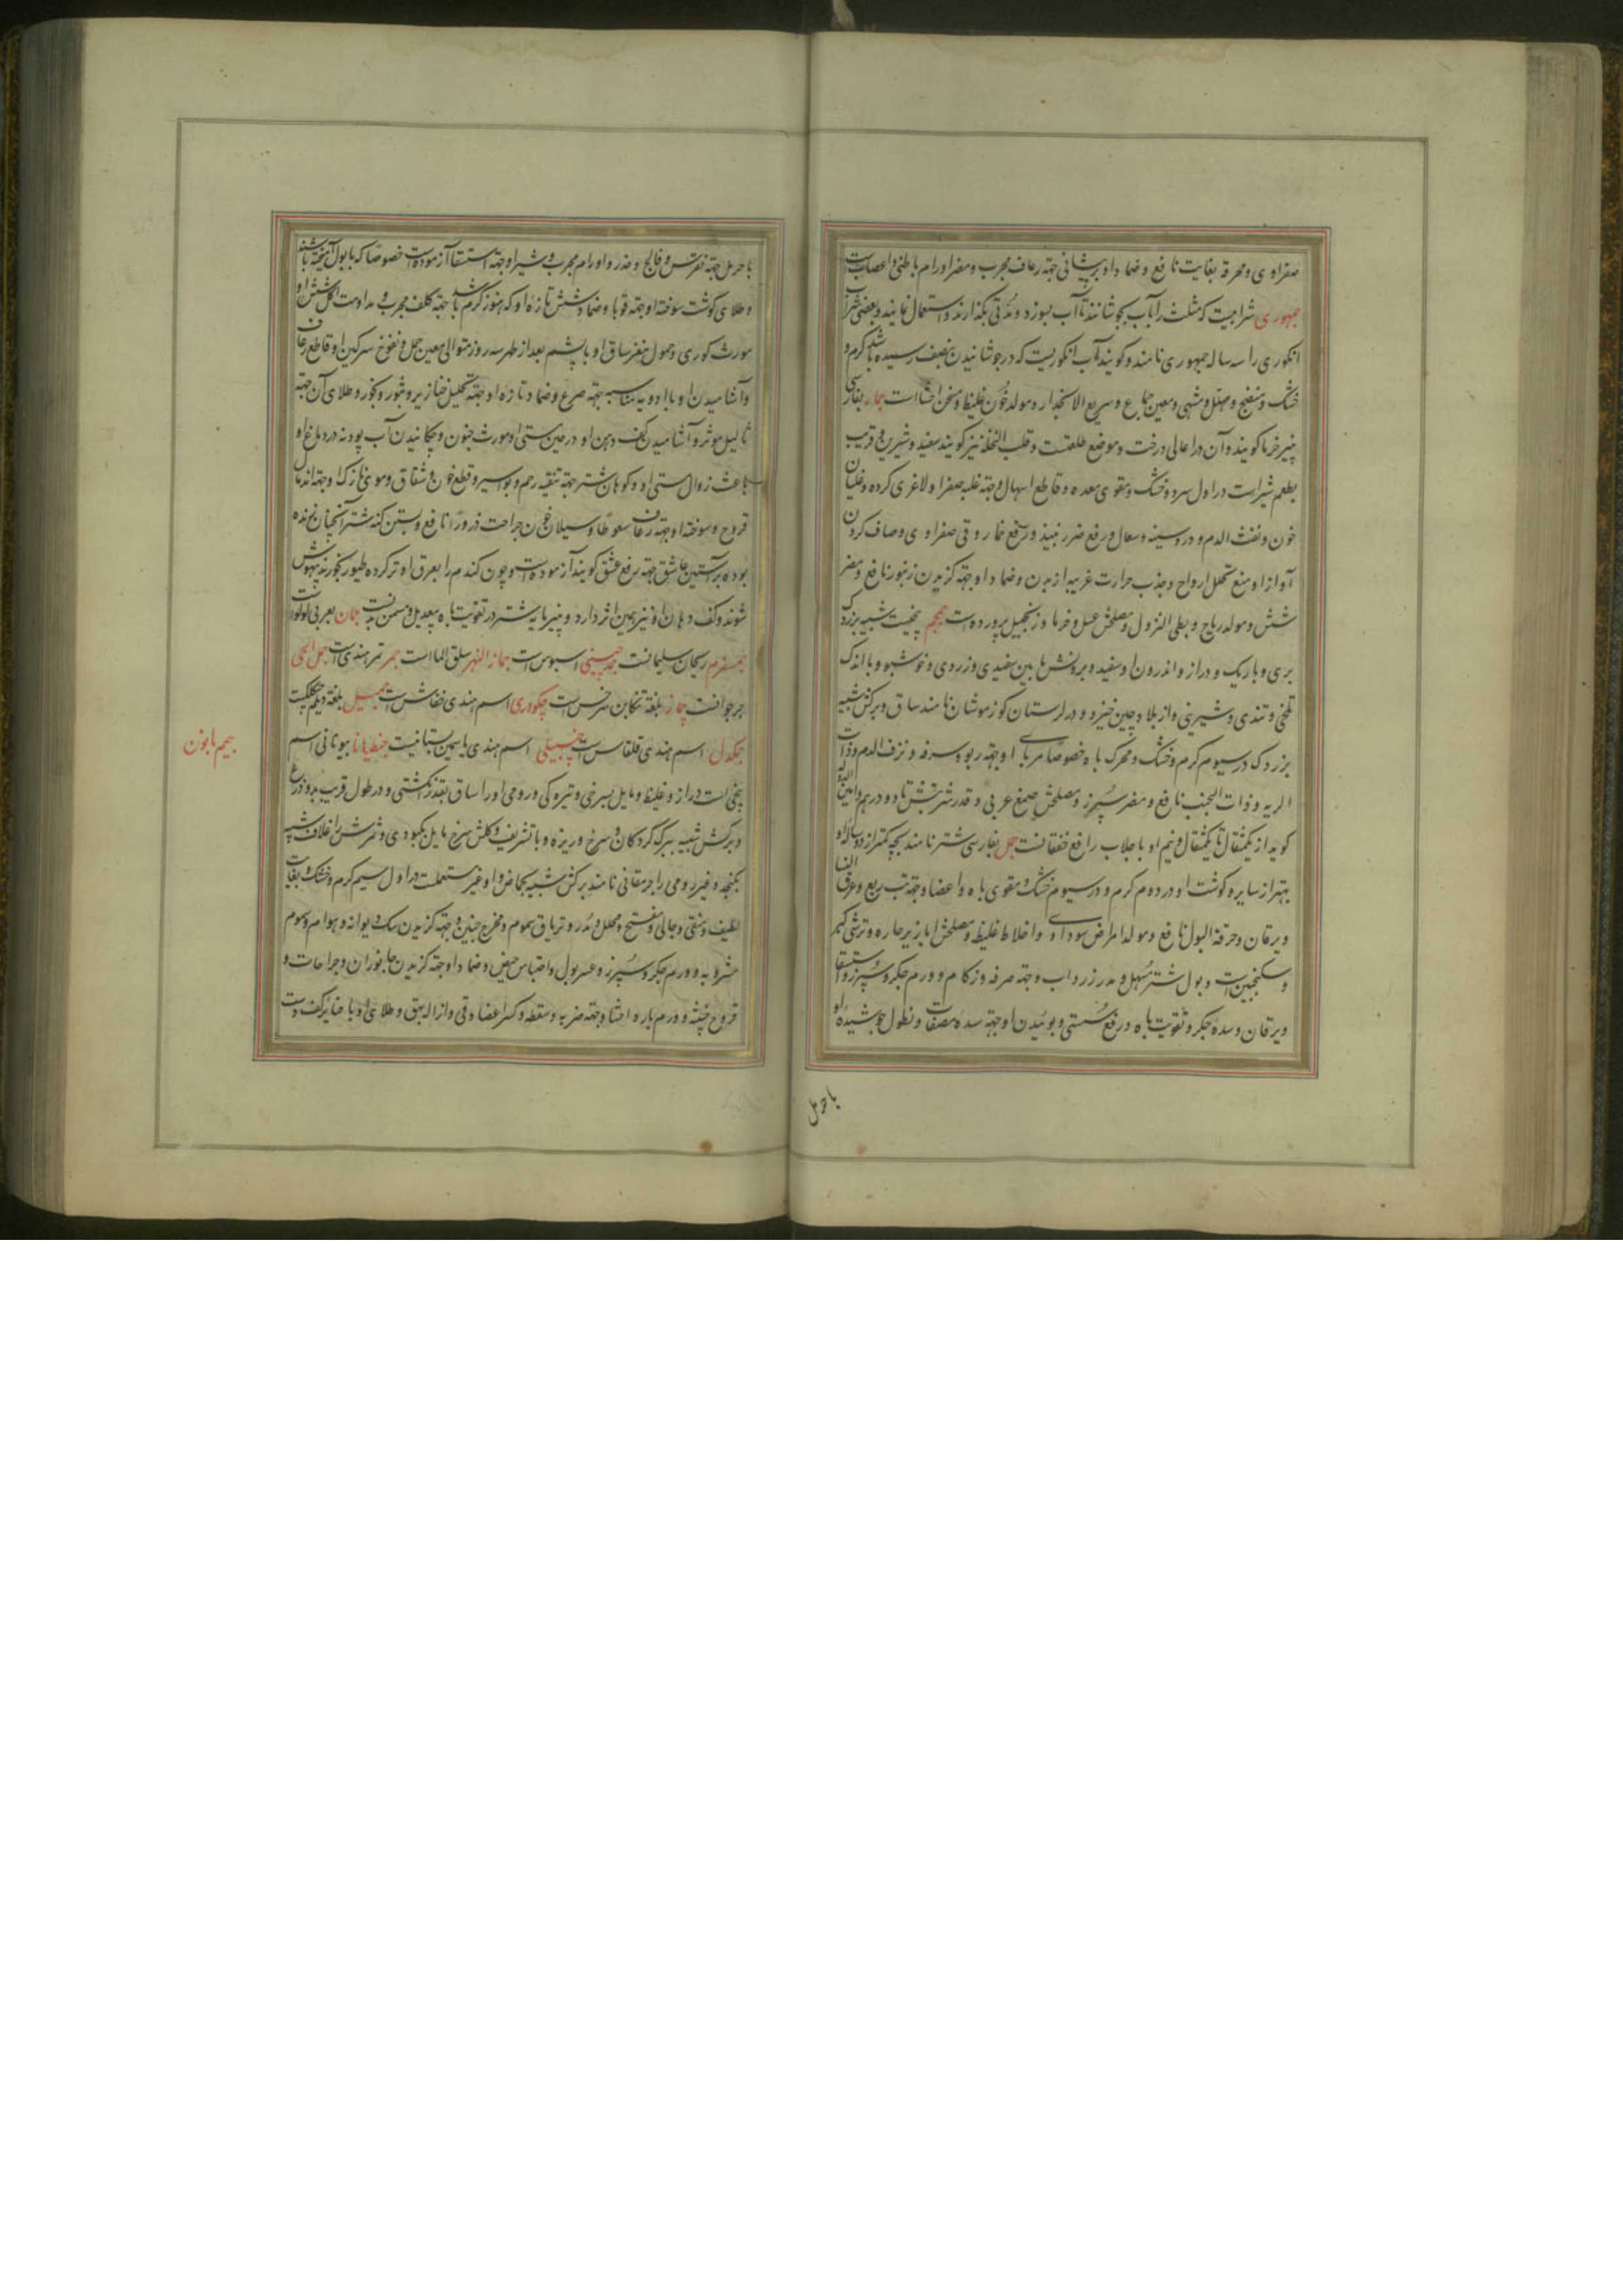 صفراوی و محرقه بغایت نافع و ضماد او بر پیشانی جهة رعاف مجرب و مضر اورام باطنی و اعصابست
جمهوری شرابیست که مثلث را باب بجوشانند تا آب بسوزد و مدتی بگذارند و استعمال نمایند و بعضی شراب
انکوری را سه ساله جمهوری نامند و کویند آب انکوریست که در جوشانیدن بنصف رسیده باشد کرم و
خشک و منضج و محلل و مشهی و معین جماع و سریع الانحدار و مولد خون غلیظ و مسخن احشا است جمار بفارسی
پنیر خرما کویند و آن در اعالی درخت و موضع طلعست و قلب النخله نیز کویند سفید و شیرین و قریب
بطعم شیر است در اول سرد و خشک و مقوی معده و قاطع اسهال و جهة غلبه صفرا و لاغری کرده و غلیان
خون و نفث الدم و درد سینه و سعال و رفع ضرر نبیذ و رفع خمار و قی صفراوی و صاف کردن
آواز او منع تحلل ارواح و جذب حرارت غریبه از بدن و ضماد او جهة کزیدن زنبور نافع و مضر
شش و مولد ریاح و بطی النزول و مصلحش عسل و خرما و زنجبیل پرورده است جمجم بیخیست شبیه بزردک
بری و باریک و دراز و اندرون او سفید و بیرونش مابین سفیدی و زردی و خوشبو و با اندک
تلخی و تندی و شیرینی و از بلاد چین خیزد و در لرستان کوزموشان نامند ساق و برکش شبیه
بزردک در سیوم کرم و خشک و محرک باه خصوصا مربای او جهة ربو و سرفه و نزف الدم و ذات
الریه و ذات الجنب نافع و مضر سپرز و مصلحش صمغ عربی و قدر شربتش تا دو درهم و امین الدوله
کوید از یکمثقال تا یکمثقال و نیم او با جلاب رافع خفقانست جمل بفارسی شتر نامند بچه کمتر از دو ساله او
بهتر از سایر و کوشت او در دوم کرم و در سیوم خشک و مقوی باه و اعضا و جهة تب ربع و عرق النسا
و یرقان و حرقة البول نافع و مولد امراض سوداوی و اخلاط غلیظه و مصلحش ابازیر حاره و ترشی کبر
و سکنجبین است و بول شتر مسهل و مدر زرداب و جهة صرفه و زکام و ورم جکر و سپرز و استسقا
و یرقان و سده جکر و تقویت باه و رفع سستی و بوئیدن او جهة سده مصفات و نطول جوشیده او
با حرمل
با حرمل جهة نقرس و فالج و خدر و اورام مجرب و شیر او جهة استسقا آزموده است خصوصا که با بول آمیخته باشند
و طلای کوشت سوخته او جهة قوبا و ضماد شش تازه او که هنوز کرم باشد جهة کلف مجرب و مداومت اکل شش او
مورث کوری و حمول مغز ساق او با پشم بعد از طهر سه روز متوالی معین حمل و نفوخ سرکین او قاطع رعاف
و آشامیدن او با ادویه مناسبه جهة صرع و ضماد تازه او جهة تحلیل خنازیر و بثور و بخور و طلای آن جهة
ثالیل موثر و آشامیدن کف دهن او در حین مستی او مورث جنون و چکانیدن آب پودنه در دماغ او
باعث زوال مستی او و کوهان شتر جهة تنقیه رحم و بواسیر و قطع خون و شقاق و موی نازک او جهة اندمال
قروح و سوخته او جهة رعاف سعوطا و سیلان خون جراحت ذرورا نافع و بستن کنه شتر آنچنانکه زنده
بوده بر آستین عاشق جهة رفع عشق کویند آزموده است و چون کندم را بعرق او تر کرده طیور بخورند بیهوش
شوند و کف دهان او نیز همین اثر دارد و پنیر مایه شتر در تقویت باه بیعدیل و مسمن بدنست جمان بعربی لولو است
جمسفرم ریحان سلیمانست جمد چینی اسبوس است جمار النهر سلق الما است جمر تمر هندی است جمل الحی
جرجوانست جماز بلغة تنکابن خرنس است چمکودری اسم هندی خفاش است جمیل بلغة دیلم جنکلیست
جمکدل اسم هندی قلقاس است چنبیلی اسم هندی یاسمین بستانیست جنطیانا بیونانی اسم
بیخی است دراز و غلیظ و مایل بسرخی و تیره کی و رومی او را ساق بقدر انکشتی و در طول قریب بدو ذرع
و برکش شبیه ببرک کردکان و سرخ و ریزه و با تشریف و کلش سرخ مایل بکبودی و ثمرش در غلاف شبیه
بکنجد و غیر رومی را جرمقانی نامند برکش شبیه بحماض و او غیر مستعملست در اول سیم کرم و خشک و بغایت
لطیف و منقی و جالی و مفتح و محلل و مدر و تریاق سموم و مخرج جنین و جهة کزیدن سک دیوانه و هوام و سموم
مشروبه و ورم جکر و سپرز و عسر بول و احتباس حیض و ضماد او جهة کزیدن جانوران و جراحات و
قروح خبیثه و ورم بارد احشا و جهة ضربه و سقطه و کسر اعضا و قی و ازاله بهق و طلای او با حنا بر کف دست
جیم با نون